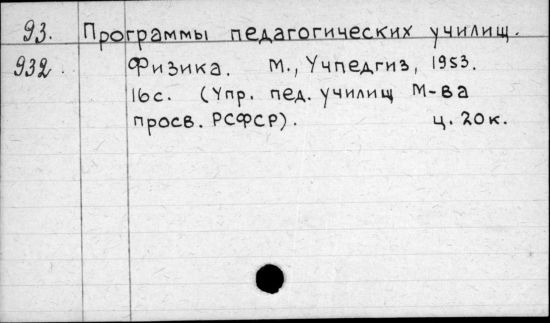 93. Программы педагогических училищ.
932. Физика. М., Учпедгиз, 1953.
16с. (Упр. пед. училищ М-ва
просв. РСФСР). ц. 20к.